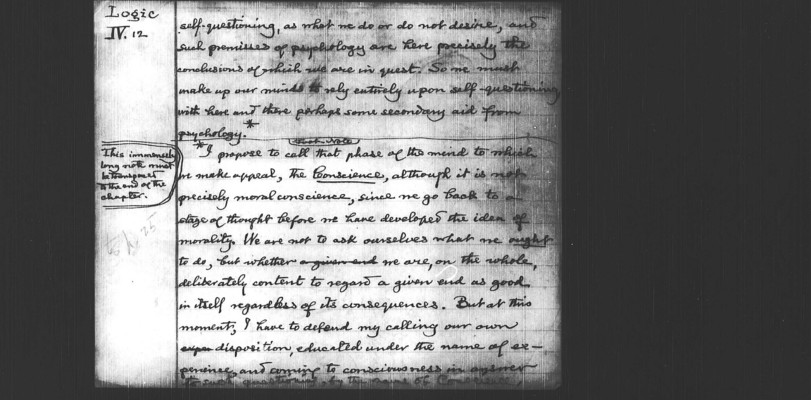 Logic
IV. 12
self-questioning, as what we do or do not desire, and
such premisses of psychology are here precisely the
conclusions of which we are in quest. So we must
make up our minds to rely entirely upon self-questioning
with here and there perhaps some secondary aid from
psychology.*
Foot-Note
This immensely
long note must
be transposed
to the end of the
chapter.
to p. 25
*I propose to call that phase of the mind to which
we make appeal, the Conscience, although it is not
precisely moral conscience, since we go back to a
stage of thought before we have developed the idea of
morality. We are not to ask ourselves what we ought
to do, but whether a given end we are, on the whole,
deliberately content to regard a given end as good
in itself regardless of its consequences. But at this
moment, I have to defend my calling our own
exper disposition, educated under the name of ex-
perience, and coming to consciousness in answer
to such questioning, by the name of Conscience